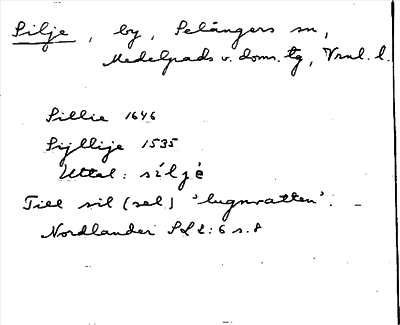 Silje, by, Selångers sn,
Medelpads v. doms. tg, Vrnl. l.
Sillie 1646
Sijllije 1535
Uttal: síljé
Till sil (sel) 'lugnvatten'. –
Nordlander SL 2:6 s. 8